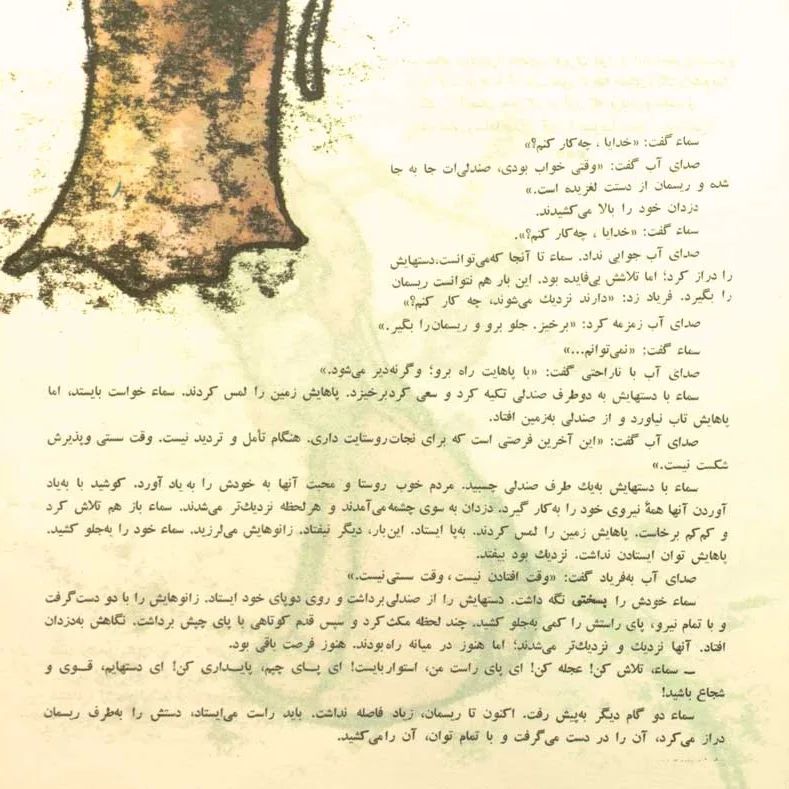 سماء گفت: «خدایا، چه‌کار کنم؟»
صدای آب گفت: «وقتی خواب بودی، صندلی‌ات جا به جا
شده و ریسمان از دستت لغزیده است.»
دزدان خود را بالا می‌کشیدند.
سماء گفت: «خدایا، چه‌کار کنم؟».
صدای آب جوابی نداد. سماء تا آنجا که‌می‌توانست،دستهایش
را دراز کرد؛ اما تلاشش بی‌فایده بود. این بار هم نتوانست ریسمان
را بگیرد. فریاد زد: «دارند نزدیك می‌شوند، چه کار کنم؟»
صدای آب زمزمه کرد: «برخیز. جلو برو و ریسمان را بگیر.»
سماء گفت: «نمی‌توانم...»
صدای آب با ناراحتی گفت: «با پاهایت راه برو؛ وگرنه‌دیر می‌شود.»
سماء با دستهایش به دوطرف صندلی تکیه کرد و سعی کردبرخیزد. پاهایش زمین را لمس کردند. سماء خواست بایستد، اما
پاهایش تاب نیاورد و از صندلی به‌زمین افتاد.
صدای آب گفت: «این آخرین فرصتی است که برای نجات‌روستایت داری. هنگام تأمل و تردید نیست. وقت سستی وپذیرش
شکست نیست.»
سماء با دستهایش به‌یك طرف صندلی چسبید. مردم خوب روستا و محبت آنها به خودش را به یاد آورد. کوشید با به‌یاد
آوردن آنها همهٔ نیروی خود را به‌کار گیرد. دزدان به سوی چشمه‌می‌آمدند و هرلحظه نزدیك‌تر می‌شدند. سماء باز هم تلاش کرد
و کم‌کم برخاست. پاهایش زمین را لمس کردند. به‌پا ایستاد. این‌بار، دیگر نیفتاد. زانوهایش می‌لرزید. سماء خود را به‌جلو کشید.
پاهایش توان ایستادن نداشت. نزدیك بود بیفتد.
صدای آب به‌فریاد گفت: «وقت افتادن نیست، وقت سستی‌نیست.»
سماء خودش را بسختی نگه داشت. دستهایش را از صندلی‌برداشت و روی دوپای خود ایستاد. زانوهایش را با دو دست‌گرفت
و با تمام نیرو، پای راستش را کمی به‌جلو کشید. چند لحظه مکث‌کرد و سپس قدم کوتاهی با پای چپش برداشت. نگاهش به‌دزدان
افتاد. آنها نزدیك و نزدیك‌تر می‌شدند؛ اما هنوز در میانه راه‌بودند. هنوز فرصت باقی بود.
ــ سماء، تلاش کن! عجله کن! ای پای راست من، استواربایست! ای پــای چپم، پایــداری کن! ای دستهایم، قــوی و
شجاع باشید!
سماء دو گام دیگر به‌پیش رفت. اکنون تا ریسمان، زیاد فاصله نداشت. باید راست می‌ایستاد، دستش را به‌طرف ریسمان
دراز می‌کرد، آن را در دست می‌گرفت و با تمام توان، آن رامی‌کشید.